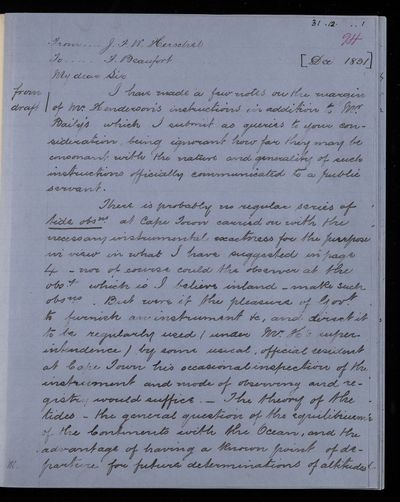 31.12. ..1
24
From.... J. F. W. Herschel
To..... F. Beaufort [Dec 1831]
My dear Sir
from draft
I have made a few notes on the margin
of Mr. Henderson's instructions in addition to Mr.
Baily's which I submit as queries to your con-
sideration, being ignorant how far they may be
consonant with the nature and generality of such
instructions officially communicated to a public
servant.
There is probably no regular series of
tide obsns. at Cape Town carried on with the
necessary instrumental exactness for the purpose
in view in what I have suggested in page
4 - nor of course could the observer at the
obsy. which is I believe inland - make such
obsns. But were it the pleasure of Govt.
to furnish an instrument &c, and direct it
to be regularly used / under Mr. H's super-
intendence / by some usual, official resident
at Cape Town his occasional inspection of the
instrument and mode of observing and re-
gistry would suffice. - The theory of the
tides - the general question of the equilibrium
of the Continents with the Ocean, and the
advantage of having a known point of de-
parture for future determinations of altitudes